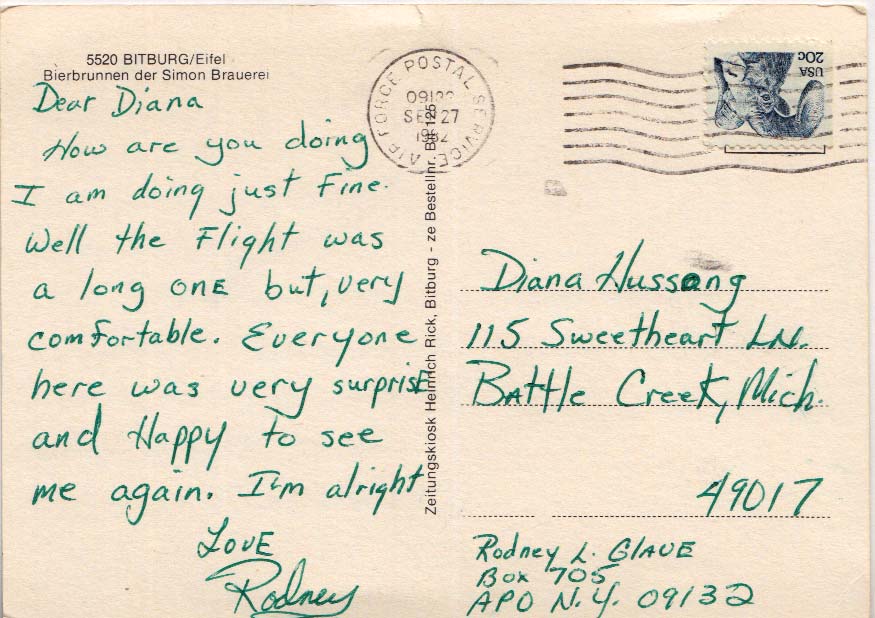 5520 BITBURG/Eifel
Bierbrunnen der Simon Brauerei
Dear Diana
How are you doing
I am doing just Fine.
Well the Flight was
a long ONE but, very
comfortable. Everyone
here was very surprisE
and Happy to see
me again. I'm alright
LovE
Rodney
Zeitungskiosk Heinrich Rick, Bitburg - ze Bestellnr. Bit 125
AIR FORCE POSTAL SERVICE
09132
SEP 27
1982
USA
20c
Diana Hussong
115 Sweetheart LN.
Battle Creek, Mich.
49017
Rodney L. GlAUE
Box 705
APO N.Y. 09132